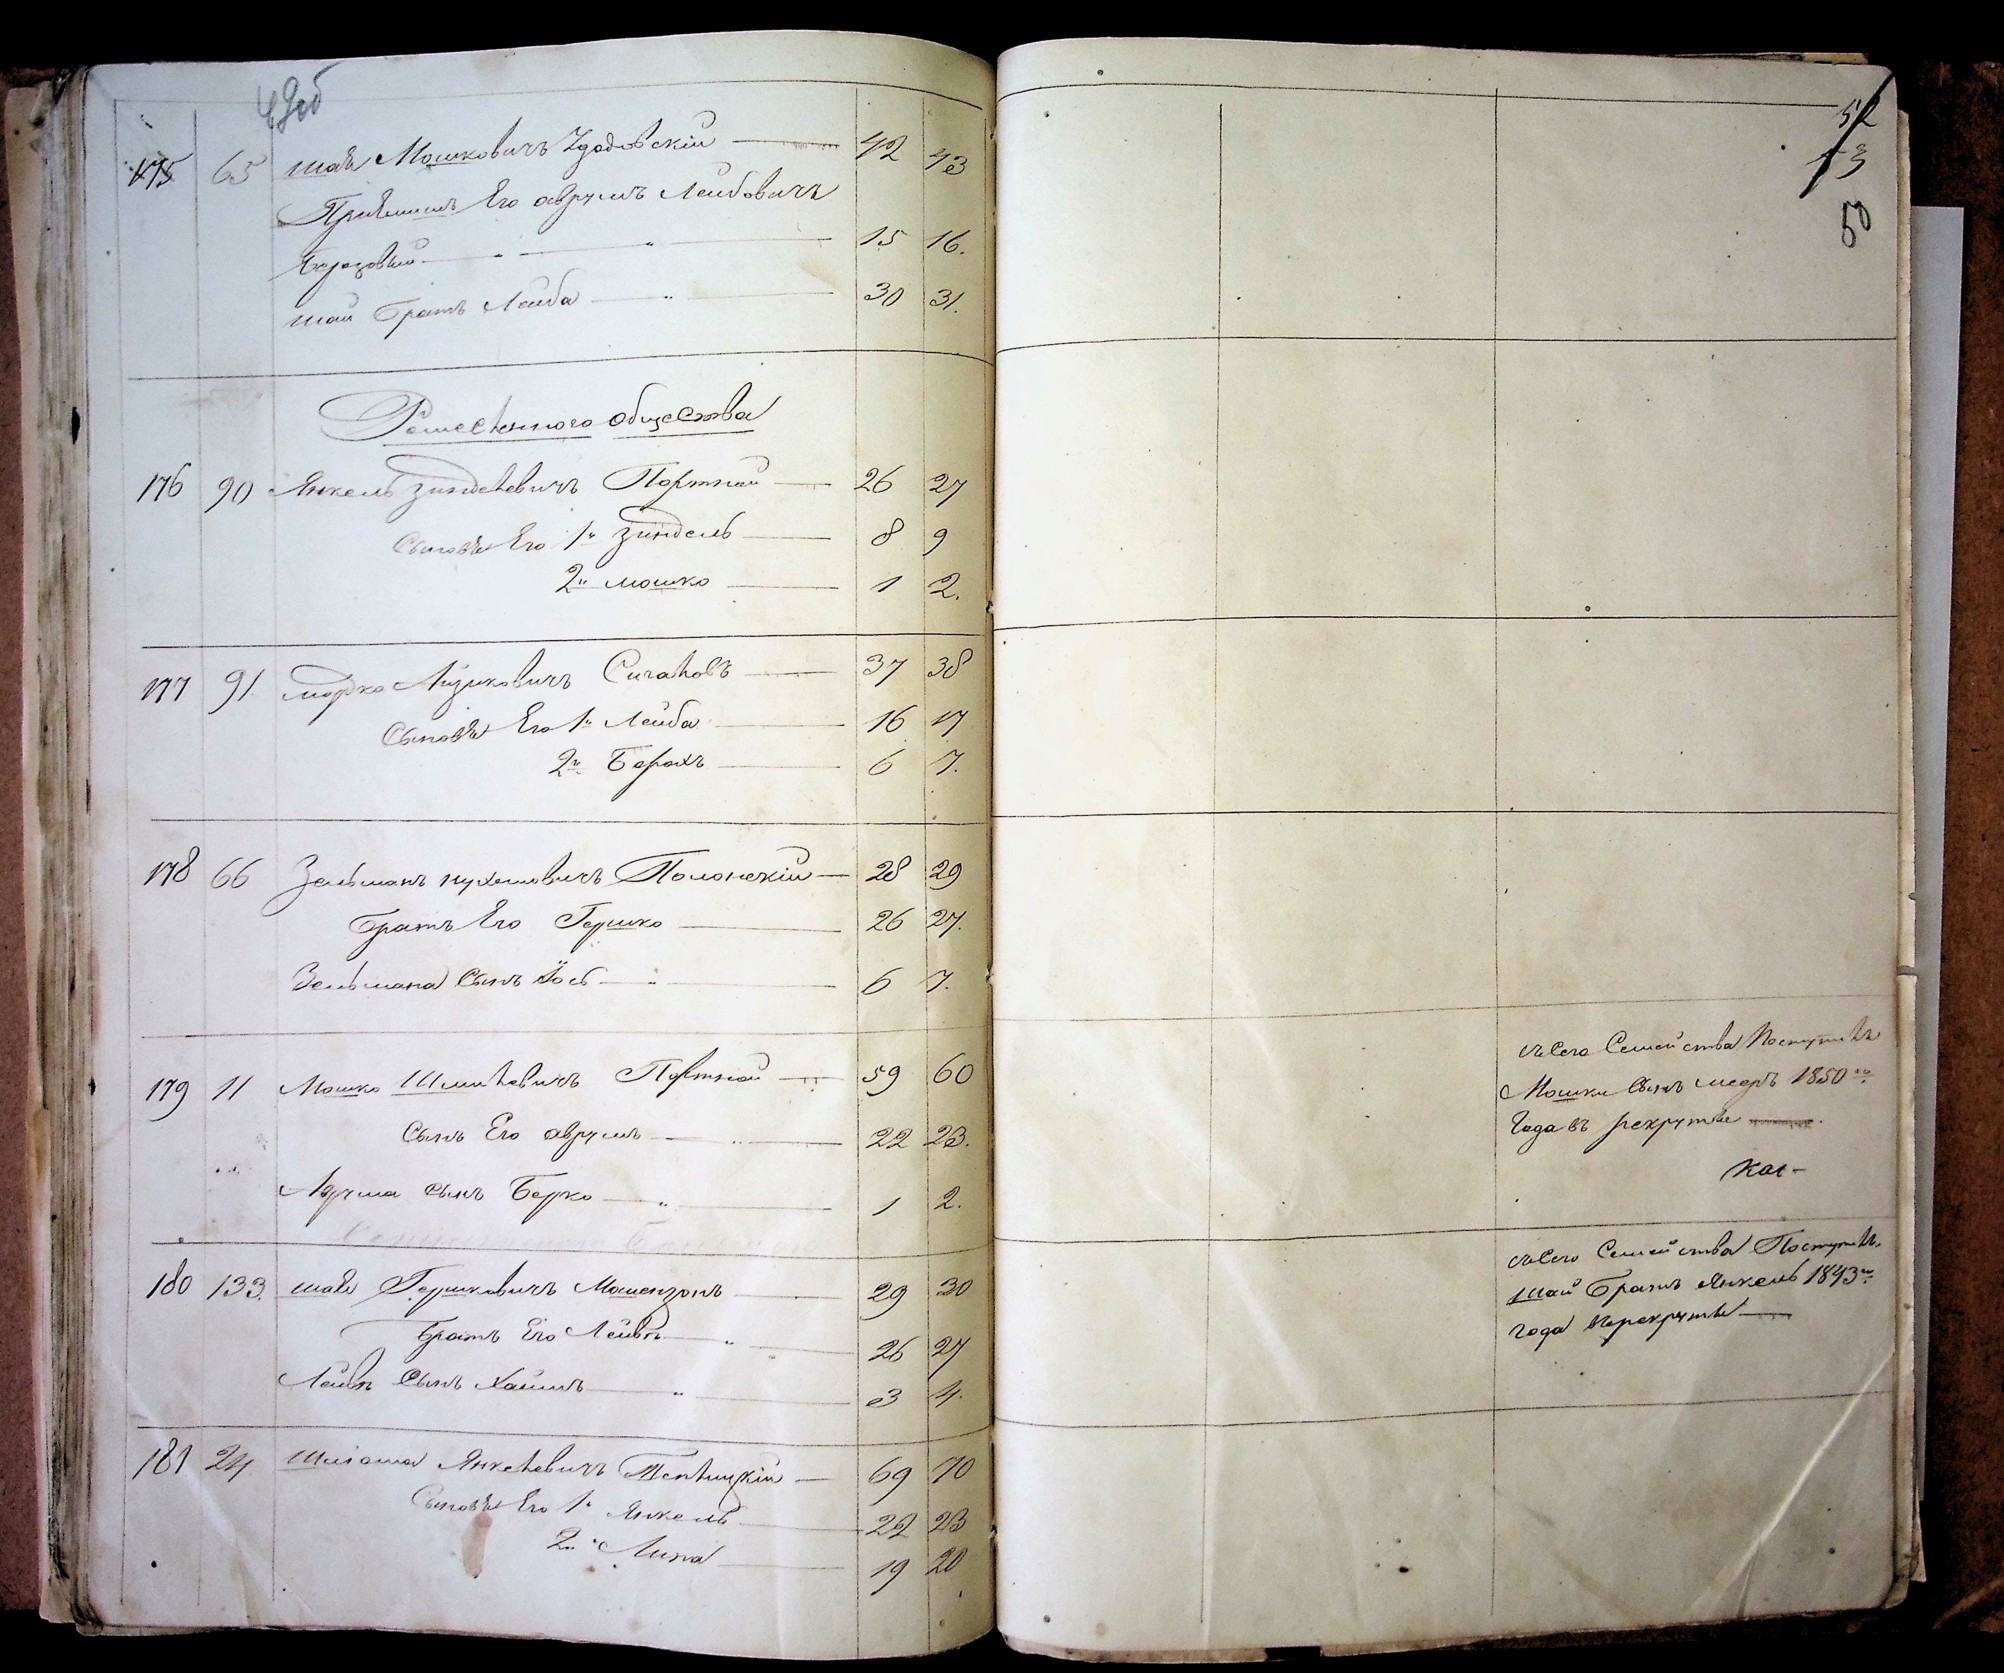 175 65 Шая Мошковичъ Здодовскій 42 43
Пріемышъ Его Аврумъ Лейбовичъ
15 16.
Шаи Братъ Лейба 30 31.
общества
176 90 Янкель Зинделевичъ Портной 26 27
Сыновья Его 1й Зиндель 8 9
2й Мошко 1 2.
177 91. Морко Сигаловъ 37 38
Сыновья Его 1й Лейба 16 17
2й Борохъ 6 7.
178 66 Зельманъ Нухимовичъ Полонскій 28 29
Братъ Его Гершко 26 27.
Зельмана Сынъ Іось 6 7.
179 11 Мошко Шмилевичъ Портной 59 60
Сынъ Его Аврумъ 22 23.
Аврума сынъ Берко 1 2.
180 133. Шая Гершковичъ Мошензонъ 29 30
Братъ Его Лейвъ 26 27
Лейвы Сынъ Хаимъ 3 4.
181 24. Янкелевичъ Теплицкій 69 70
Сыновья Его 1й Янкель 22 23
2й Липа 19 20
52
53
50
съ Сего Семейства Поступилъ
Мошки Сынъ 1850го
Года въ рекруты
съ Сего Семейства Поступилъ
Шаи Братъ Янкель 1843го
года